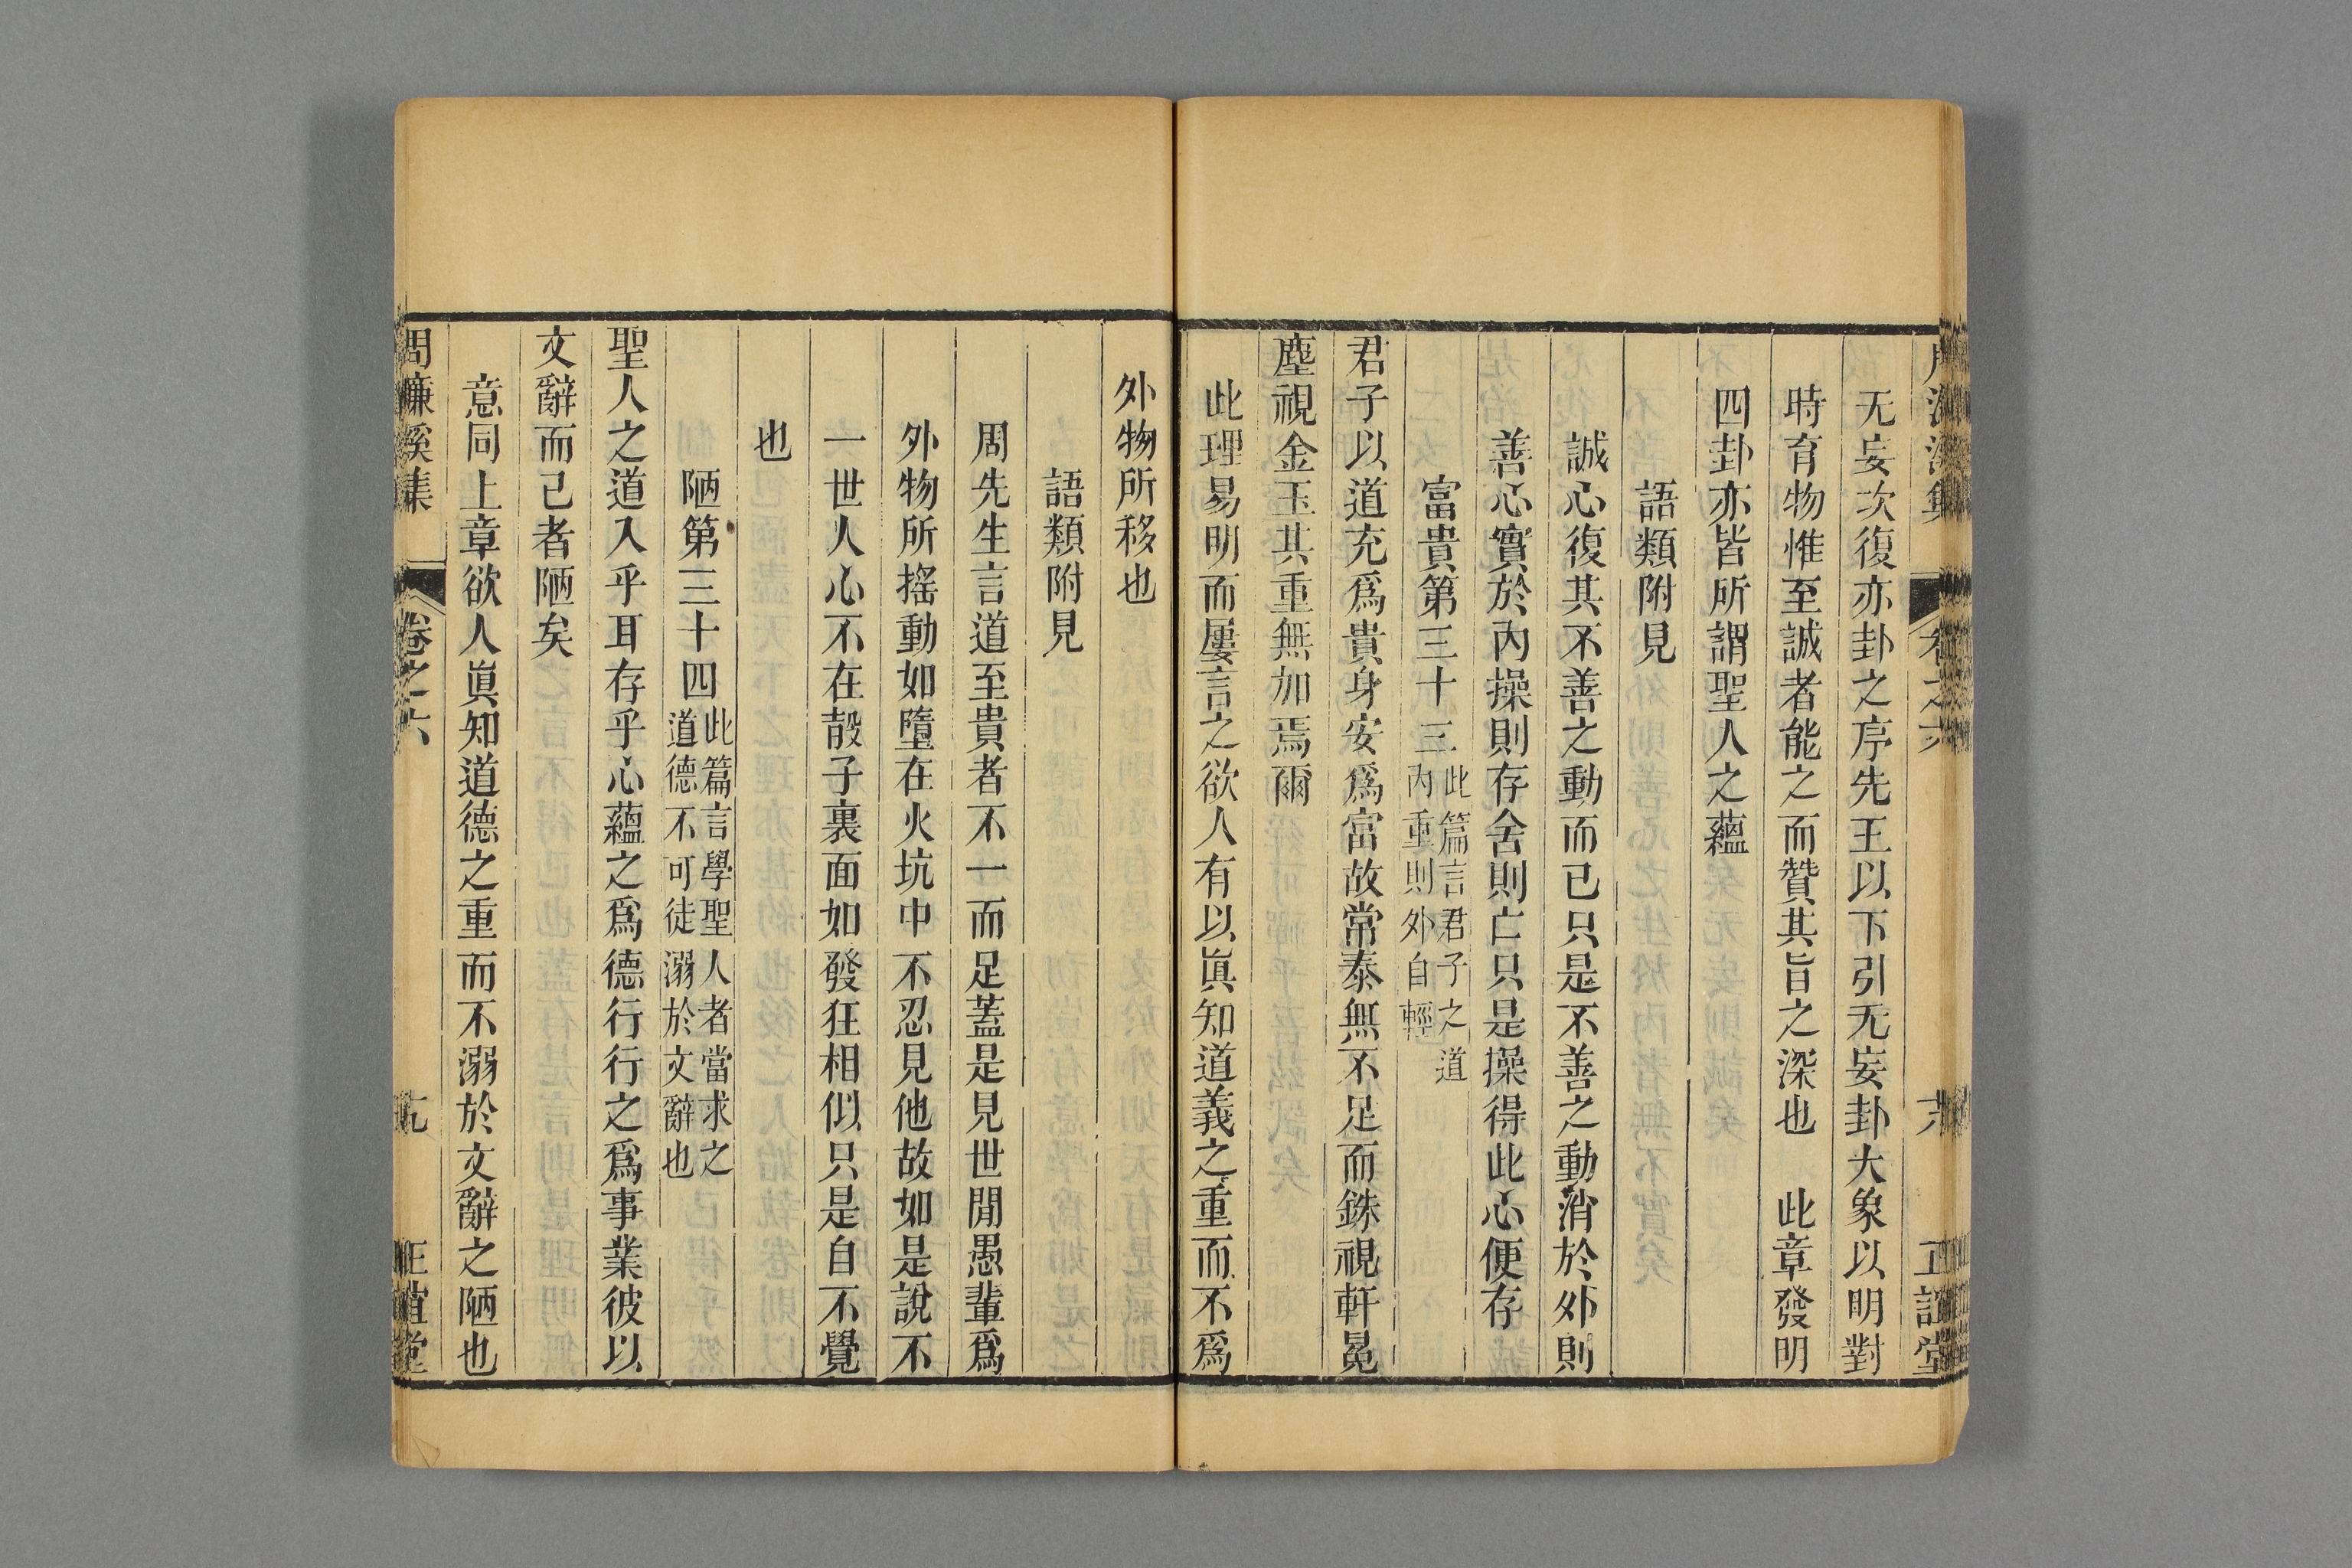 无妄次復亦卦之序先王以下引无妄卦大象以明對
時育物惟至誠者能之而贊其旨之深也 此章發明
四卦亦皆所謂聖人之蘊
語類附見
誠心復其不善之動而已只是不善之動消於外則
善心實於內操則存舍則亡只是操得此心便存
富貴第三十三 此篇言君子之道
內重則外自輕
君子以道充為貴身安為富故常泰無不足而銖視軒冕
塵視金玉其重無加焉爾
此理易明而屢言之欲人有以眞知道義之重而不為
外物所移也
語類附見
周先生言道至貴者不一而足蓋是見世閒愚輩為
外物所搖動如墮在火坑中不忍見他故如是說不
一世人心不在㱿子裏面如發狂相似只是自不覺
也
陋第三十四 此篇言學聖人者當求之
道德不可徒溺於文辭也
聖人之道入乎耳存乎心蘊之為德行行之為事業彼以
文辭而已者陋矣
意同上章欲人眞知道德之重而不溺於文辭之陋也
周濂溪集 卷之六
正誼堂